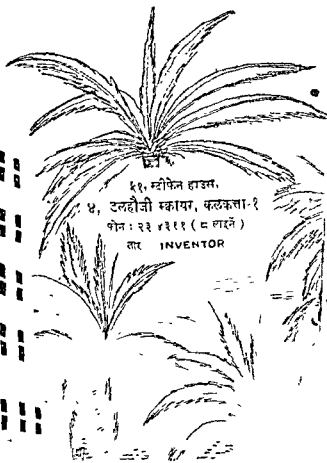 ५१, स्टीफेन हाउस,
४, डलहौजी स्कायर, कलकत्ता-१
फोन : २३ ४३११ ( ८ लाइनें )
तार INVENTOR